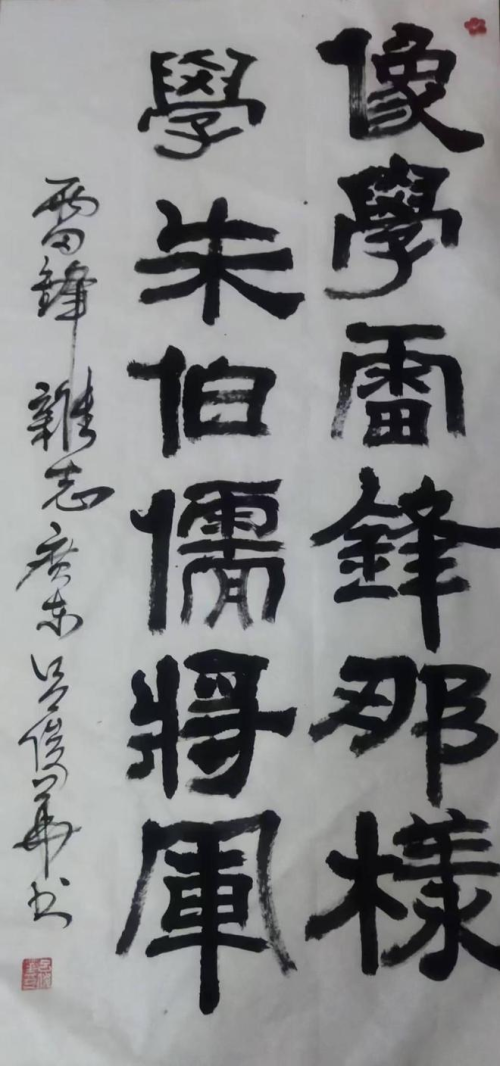 像學雷鋒那樣
學朱伯儒將軍
雷鋒雜志廣东吕俊華书